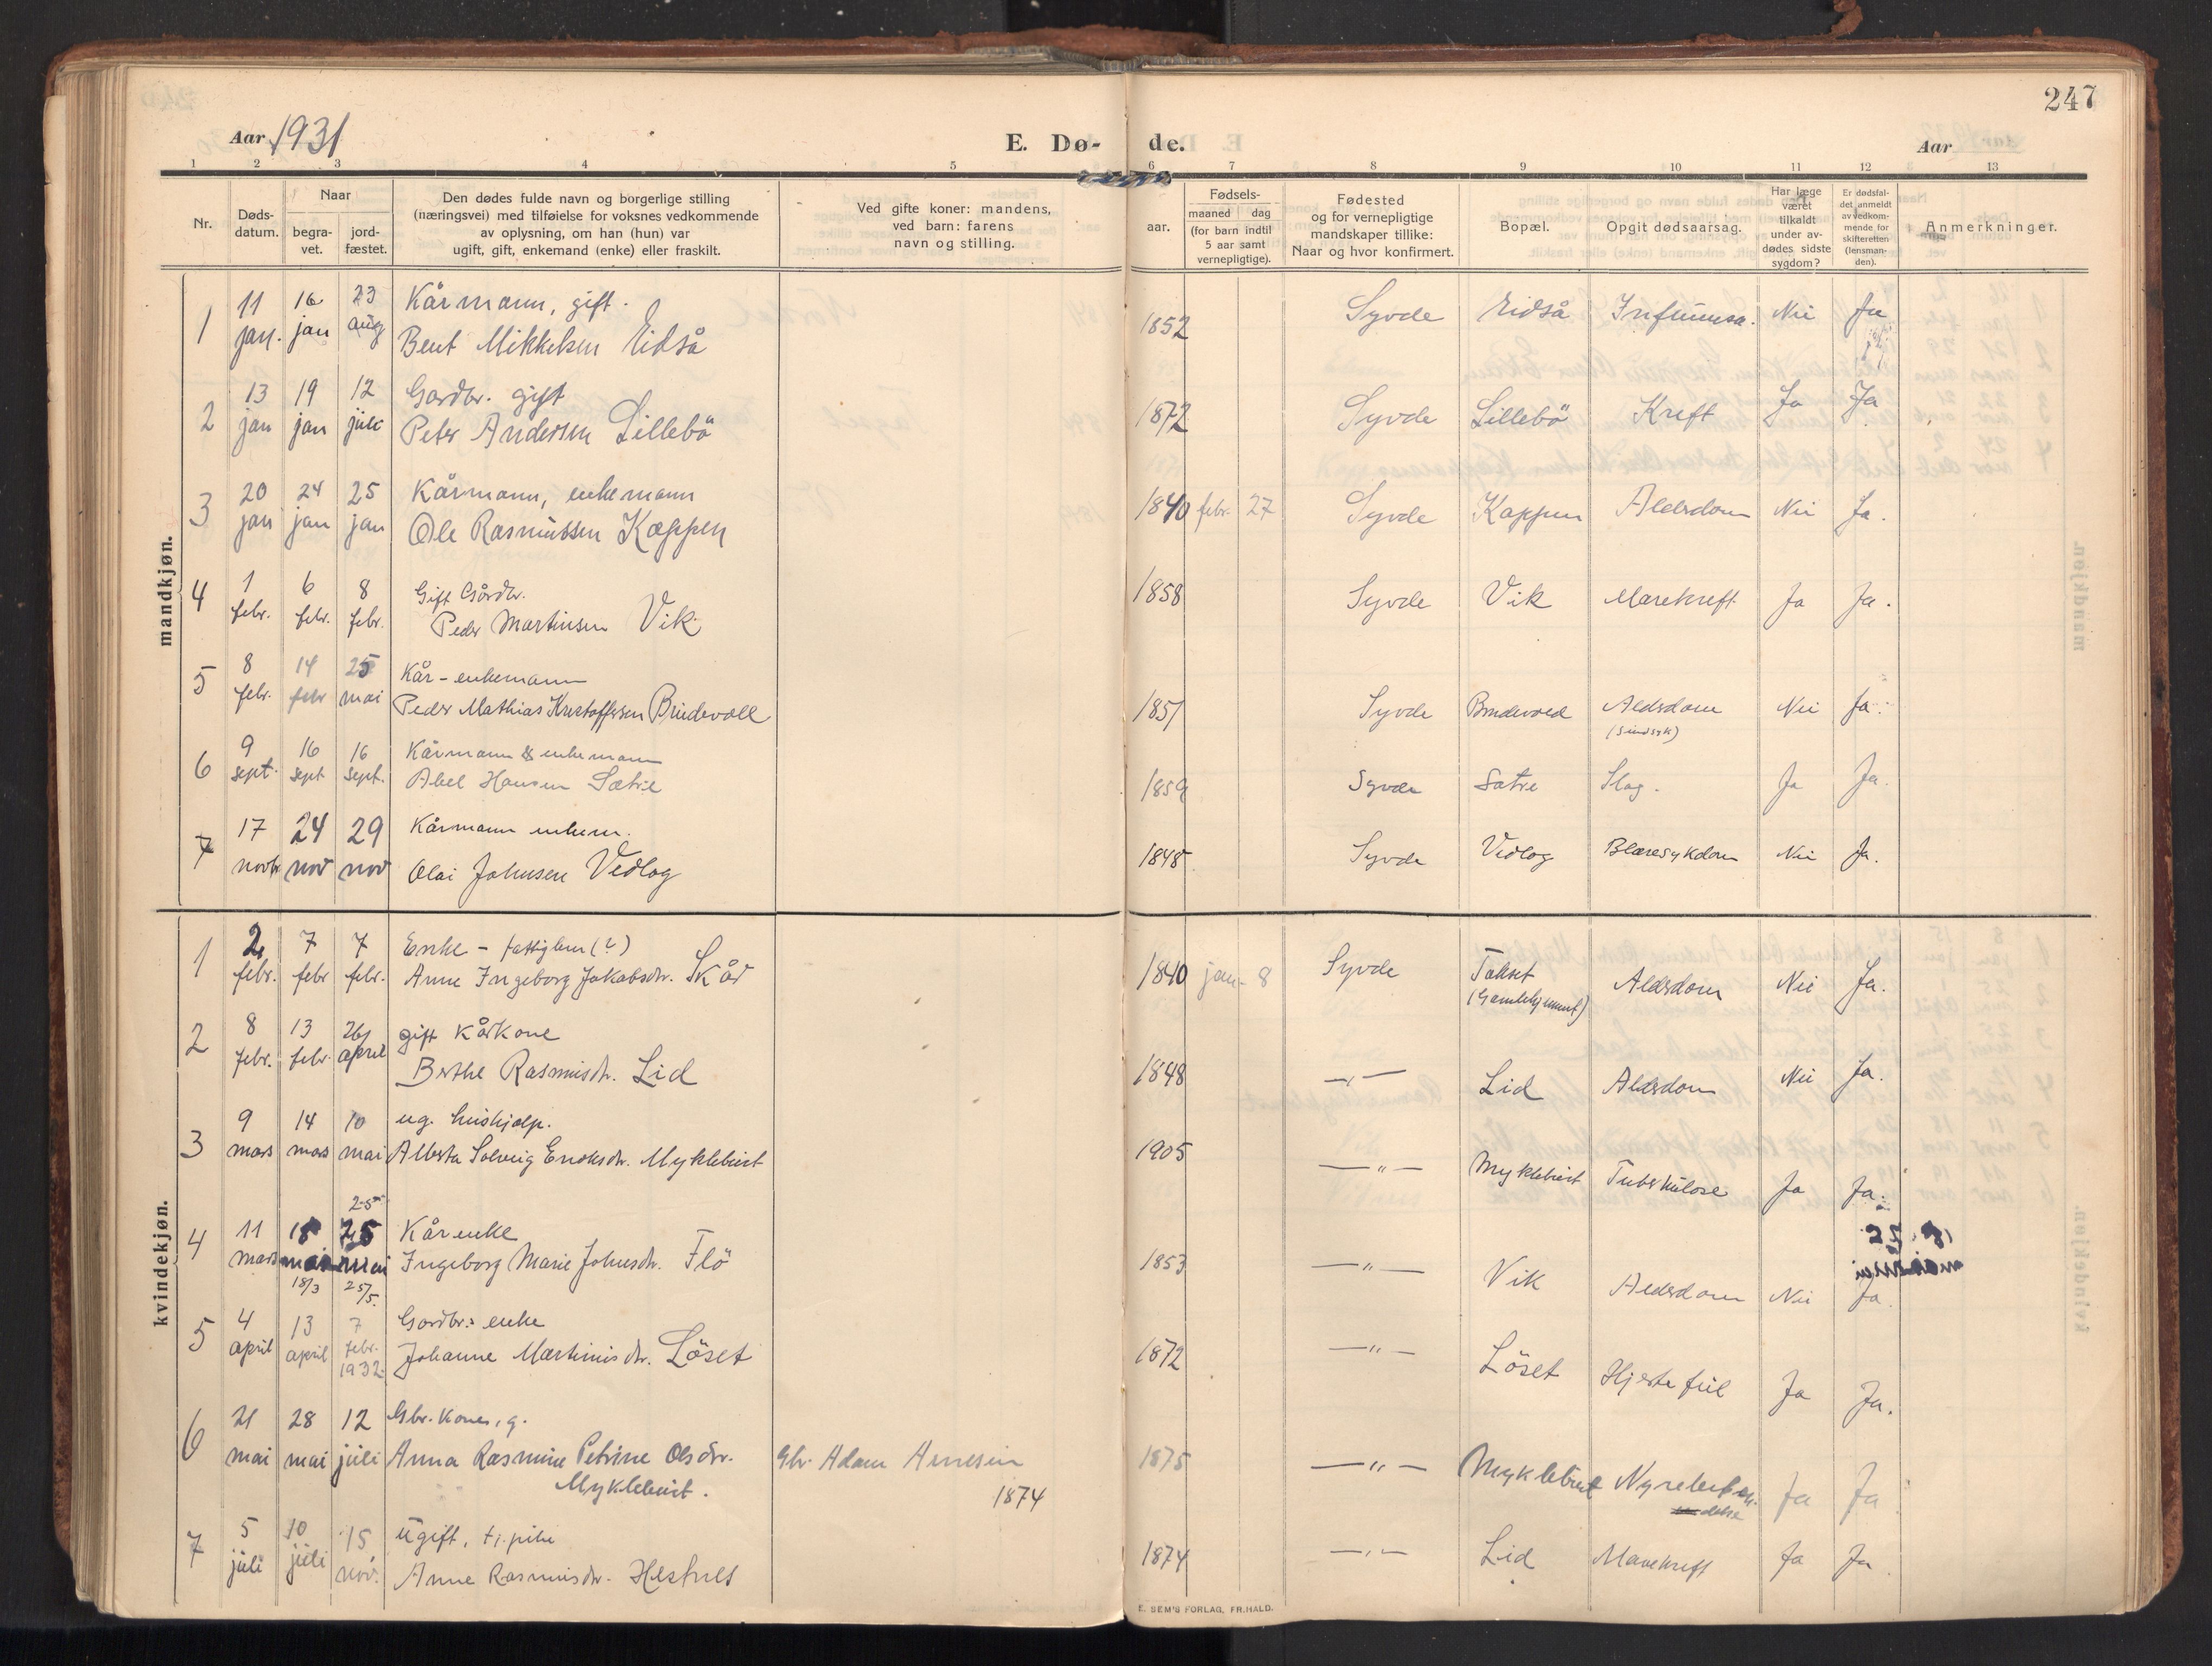 247
Aar 1931
E. Dø- de.
Aar
1 2 3 4 5 6 7 8 9 10 11 12 13
Nr.
Døds-
datum.
Naar
begra-
vet.
jord-
fæstet.
Den dødes fulde navn og borgerlige stilling
(næringsvei) med tilføielse for voksnes vedkommende
av oplysning, om han (hun) var
ugift, gift, enkemand (enke) eller fraskilt.
Ved gifte koner: mandens,
ved barn: farens
navn og stilling.
Fødsels-
aar.
maaned dag
(for barn indtil
5 aar samt
vernepligtige).
Fødested
og for vernepligtige
mandskaper tillike:
Naar og hvor konfirmert.
Bopæl.
Opgit dødsaarsag.
Har læge
været
tilkaldt
under av-
dødes sidste
sygdom?
Er dødsfal-
det anmeldt
av vedkom-
mende for
skifteretten
(lensman-
den).
Anmerkninger.
mandkjøn.
1 11 16 23 Kårmann, gift.
jan. jan aug Bent Mikkelsen Eidså 1852 Syvde Eidså Influensa. Nei Ja
2 13 19 12 Gardbr. gift
jan jan juli Peter Andersen Lillebö 1872 Syvde Lillebö Kreft Ja Ja
3 20 24 25 Kårmann, enkemann
jan jan jan Ole Rasmussen Kappen 1840 febr. 27 Syvde Kappen Aldersdom Nei Ja.
4 1 6 8 Gift Gårdbr.
febr. febr. febr. Peder Martinsen Vik 1858 Syvde Vik Mavekreft Ja Ja.
5 8 14 25 Kår-enkemann
febr. febr mai Peder Mathias Kristoffersen Brudevoll 1851 Syvde Brudevold Aldersdom Nei Ja.
(sindsyk)
6 9 16 16 Kårmann & enkemann
sept. sept sept. Abel Hansen Sætre 1859 Syvde Sætre Slag. Ja Ja.
7 17 24 29 Kårmann enkem.
novbr nov nov Olai Johnsen Vedlog 1848 Syvde Vedlog Blæresykdom Nei Ja.
kvindekjøn.
1 2 7 7 Enke - fattiglem (?)
febr. febr febr. Anne Ingeborg Jakobsdr. Skår 1840 jan. 8 Syvde Takset Aldersdom Nei Ja.
(Gamlehjemmet)
2 8 13 26 gift Kårkone
febr. febr. april Berthe Rasmusdr. Lid 1848 —„— Lid Aldersdom Nei Ja.
3 9 14 10 ug. hushjelp.
mars mars mai Alberta Solveig Enoksdr. Myklebust 1905 —"— Myklebust Tuberkulose Ja Ja.
25
4 11 18 25 Kårenke
mars mai mai Ingeborg Marie Johnsdr. Flö 1853 —"— Vik Aldersdom Nei Ja.
18/3 25/5.
5 4 13 7 Gardbr: enke
april april febr. 1932. Johanne Martinusdr. Löset 1872 —"— Löset Hjertefeil Ja Ja.
6 21 28 12 Gbr. kone, g.
mai mai juli Anna Rasmine Petrine Olsdr. Gbr. Adam Arnesen 1875 —"— Myklebust Ja Ja
Myklebust. 1874
7 5 10 15 ugift, tj. pike
juli juli nov. Anne Rasmusdr. Hestnes 1874 —„— Lid Mavekreft Ja Ja
E. SEM'S FORLAG, FR.HALD.